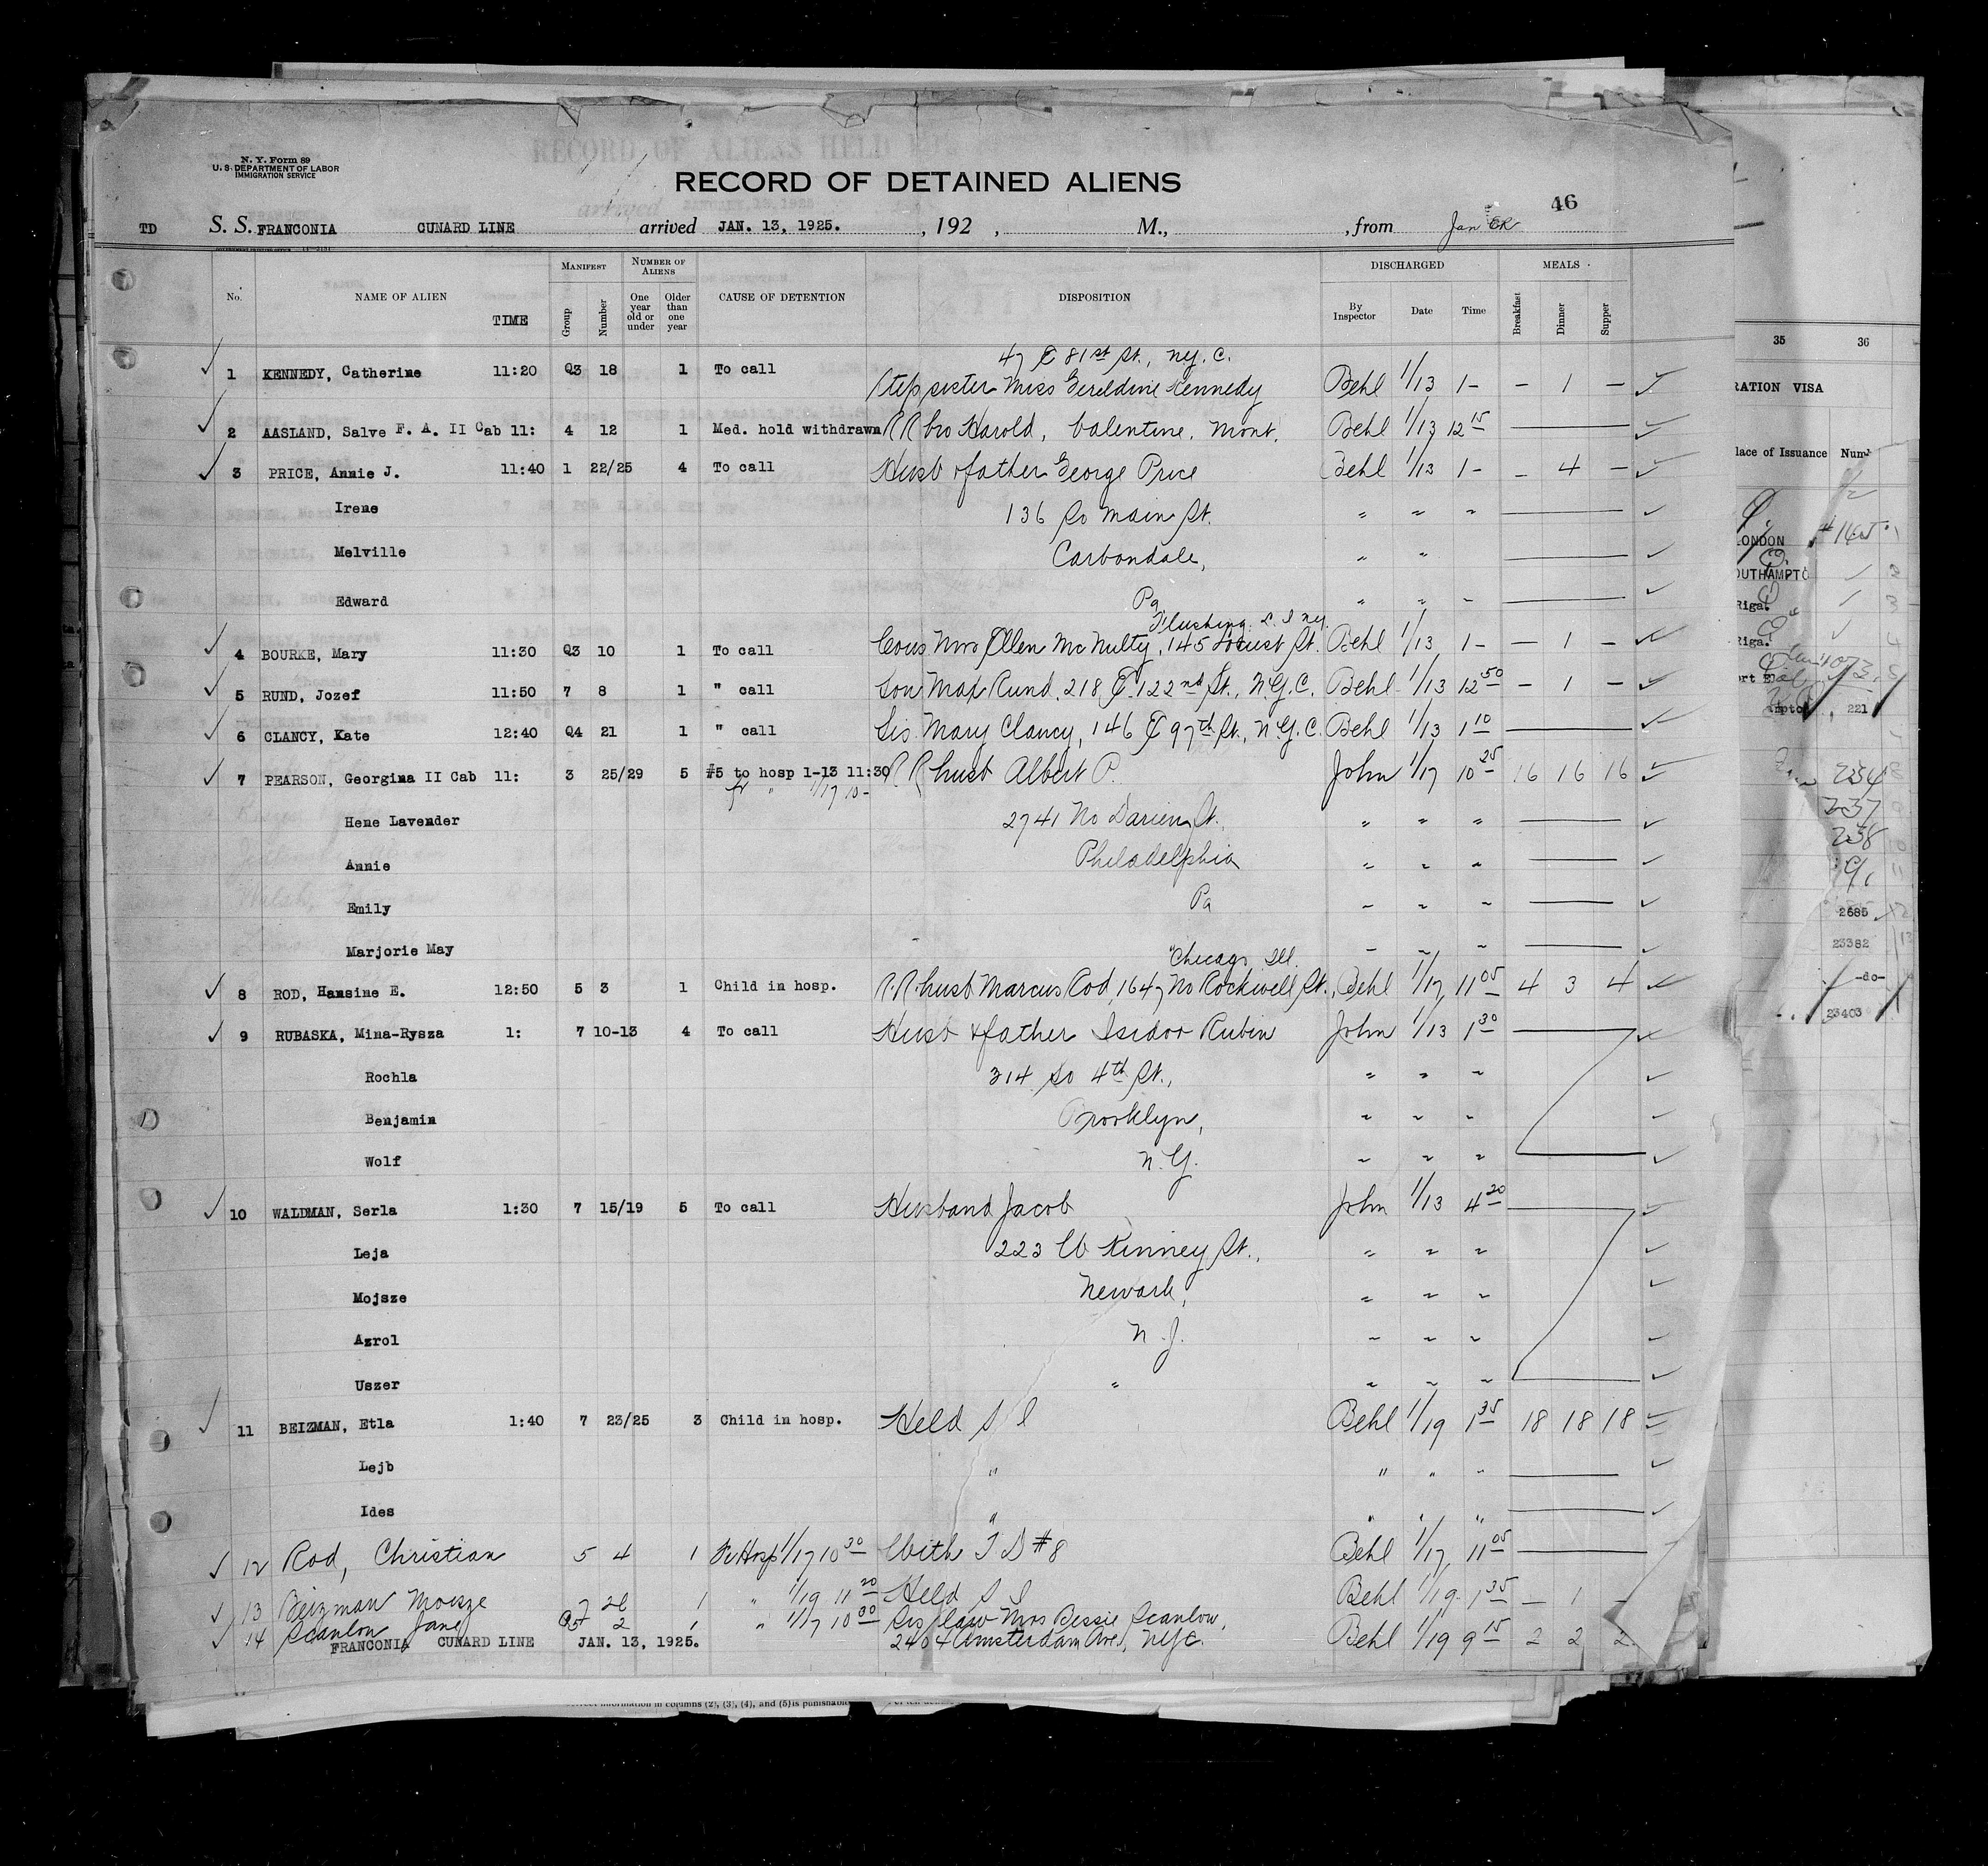 N. Y. Form 89
U. S. DEPARTMENT OF LABOR
IMMIGRATION SERVICE
RECORD OF DETAINED ALIENS
46
TD S. S. FRANCONIA CUNARD LINE arrived JAN. 13, 1925. , 192 , M., , from
No. NAME OF ALIEN TIME MANIFEST Group Number NUMBER OF ALIENS One year old or under Older than one year CAUSE OF DETENTION DISPOSITION DISCHARGED By Inspector Date Time MEALS Breakfast Dinner Supper
47 E 81st St., N.Y.C.
1 KENNEDY, Catherine 11:20 Q3 18 1 To call Step sister Miss Gereldine Kennedy Behl 1/13 1- - 1 -
2 AASLAND, Salve F. A. II Cab 11: 4 12 1 Med. hold withdrawn RR bro Harold, Valentine, Mont. Behl 1/13 12 15
3 PRICE, Annie J. 11:40 1 22/25 4 To call Husb & father George Price Behl 1/13 1- - 4 -
Irene 136 So Main St. " " "
Melville Carbondale, " "
Edward Pa " " "
Flushing L. I. N.Y.
4 BOURKE, Mary 11:30 Q3 10 1 To call Cous Mrs Ellen McNulty, 145 Locust St. Behl 1/13 1- - 1 -
5 RUND, Jozef 11:50 7 8 1 " call Son Max Rund, 218 E. 122nd St., N.Y.C. Behl 1/13 12 50 - 1 -
6 CLANCY, Kate 12:40 Q4 21 1 " call Sis. Mary Clancy, 146 E 97th St., N.Y.C. Behl 1/13 1 10
7 PEARSON, Georgina II Cab 11: 3 25/29 5 #5 to hosp 1-13 11:30 RR husb Albert P. John 1/17 10 25 16 16 16
fr " 1/17 10-
Hene Lavender 2741 No Darien St. " " "
Annie Philadelphia " " "
Emily Pa " " "
Marjorie May " " "
Chicago Ill.
8 ROD, Hansine E. 12:50 5 3 1 Child in hosp. RR husb Marcus Rod, 1647 No Rockwell St., Behl 1/17 11 05 4 3 4
9 RUBASKA, Mina-Rysza 1: 7 10-13 4 To call Husb & father Isidor Rubin John 1/13 1 30
Rochla 314 So 4th St., " " "
Benjamin Brooklyn, " " "
Wolf N.Y. " " "
10 WALDMAN, Serla 1:30 7 15/19 5 To call Husband Jacob John 1/13 4 20
Leja 223 W Kinney St., " " "
Mojsze Newark, " " "
Azrol N.J. " " "
Uszer " " " "
11 BEIZMAN, Etla 1:40 7 23/25 3 Child in hosp. Held S I Behl 1/19 1 35 18 18 18
Lejb " " " "
Ides " " " "
12 Rod, Christian 5 4 1 Fr Hosp 1/17 10 30 With T D #8 Behl 1/17 11 05
13 Beizman Moisze 7 1 " 1/19 11 20 Held S I Behl 1/19 1 35 - 1 -
14 Scanlon Jane Q5 2 1 " 1/17 10 30 Sis law Mrs Bessie Scanlon, Behl 1/19 9 15 2 2 2
FRANCONIA CUNARD LINE JAN. 13, 1925. 2404 Amsterdam Ave, NYC
35 36
RATION VISA
lace of Issuance Num
LONDON
OUTHAMPTO
Riga.
Riga.
ort E
mpto 221
234
237
238
2685
23382
-do-
23403
rrect information in columns (2), (3), (4), and (5) is punishabl